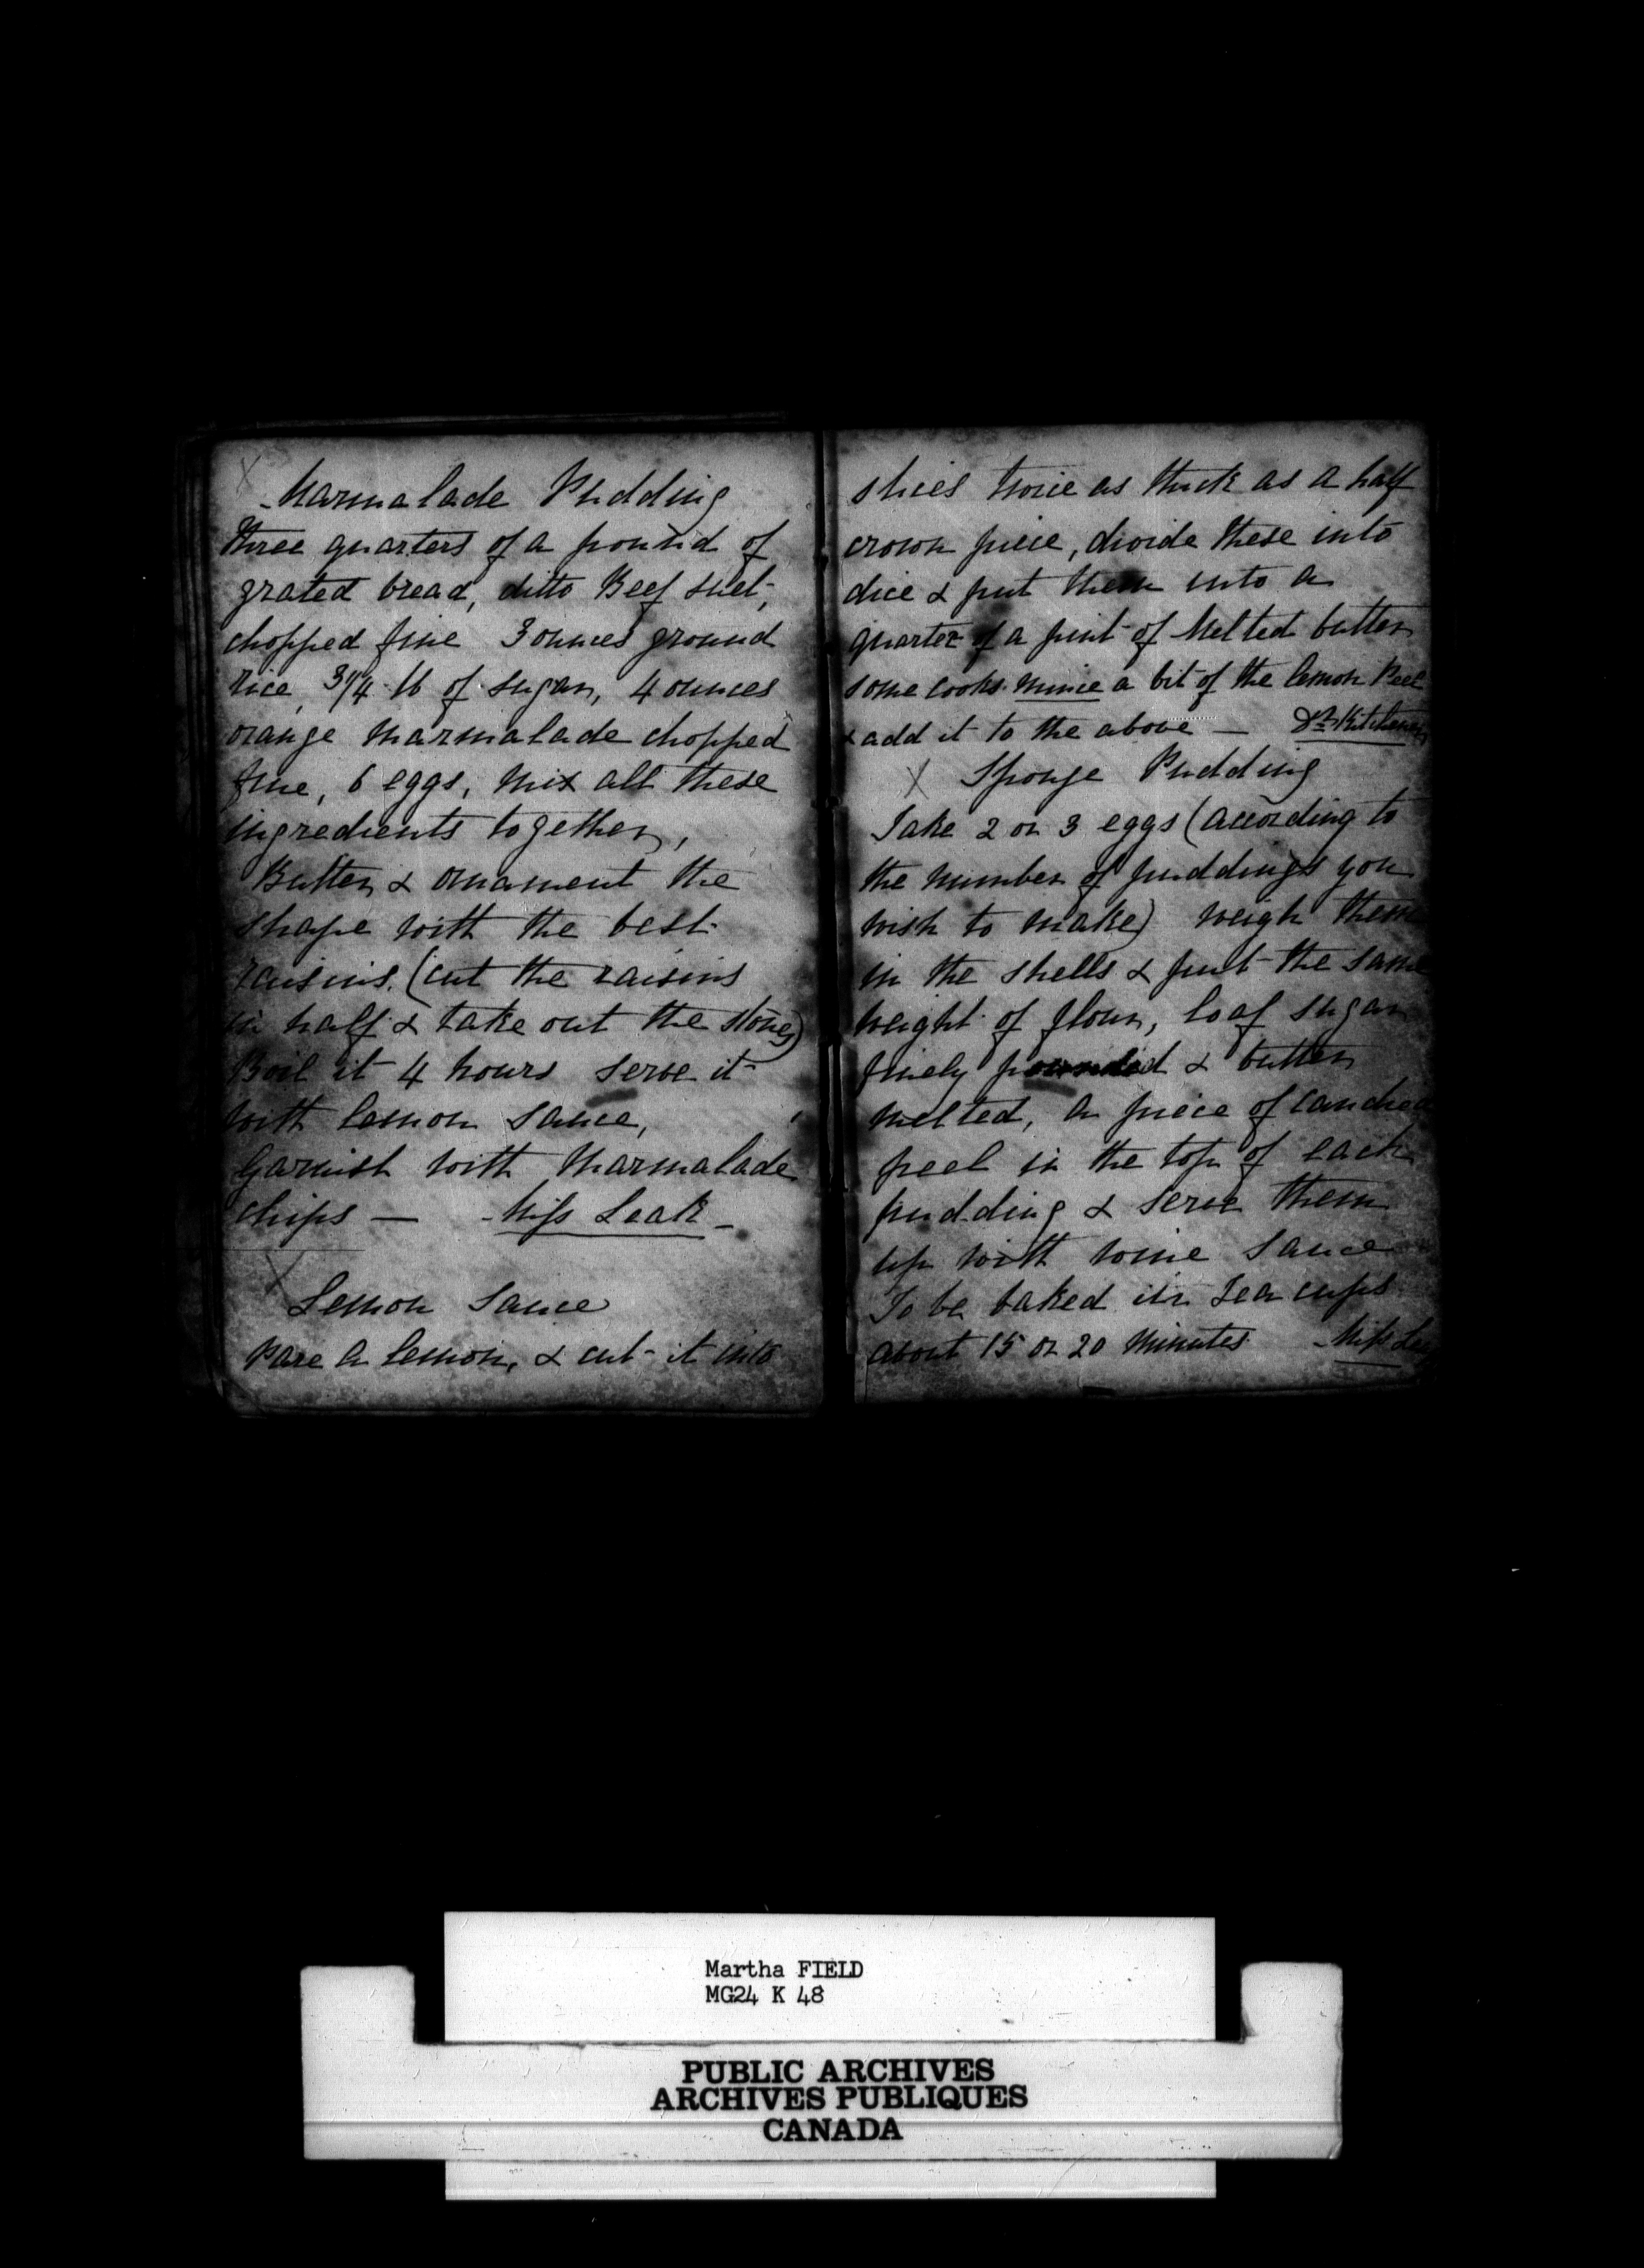 X
Marmalade Pudding
three quarters of a pound of
grated bread, ditto Beef suet,
chopped fine 3 ounces ground
rice, 3/4 lb of sugar, 4 ounces
orange Marmalade chopped
fine, 6 eggs, mix all these
ingredients together,
Butter & ornament the
shape with the best
raisins. (cut the raisins
in half & take out the stones)
Boil it 4 hours serve it
with lemon sauce,
Garnish with Marmalade
chips — Miss Leak –
X
Lemon Sauce
Pare a lemon, & cut it into
slices twice as thick as a half
crown piece, divide these into
dice & put them into a
quarter of a pint of Melted butter
some cooks mince a bit of the lemon Peel
& add it to the above — Dr Kitchener
X Sponge Pudding
Take 2 or 3 eggs (according to
the number of puddings you
wish to make) weigh them
in the shells & put the same
weight of flour, loaf sugar
finely pounded & butter
melted, a piece of candied
peel in the top of each
pudding & serve them
up with wine sauce
To be baked in Tea cups
about 15 or 20 minutes Miss
Martha FIELD
MG24 K 48
PUBLIC ARCHIVES
ARCHIVES PUBLIQUES
CANADA